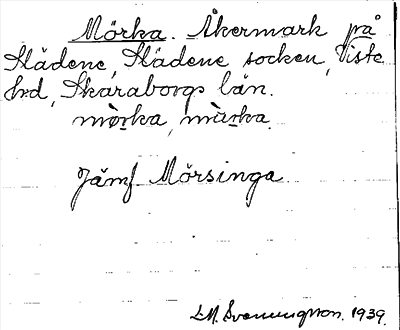 Mörka. Åkermark på
Slädene, Slädene socken, Viste
hrd, Skaraborgs län.
mö̀rka, mùrka.
Jämf. Mörsinga.
L.M. Svenungsson. 1939.